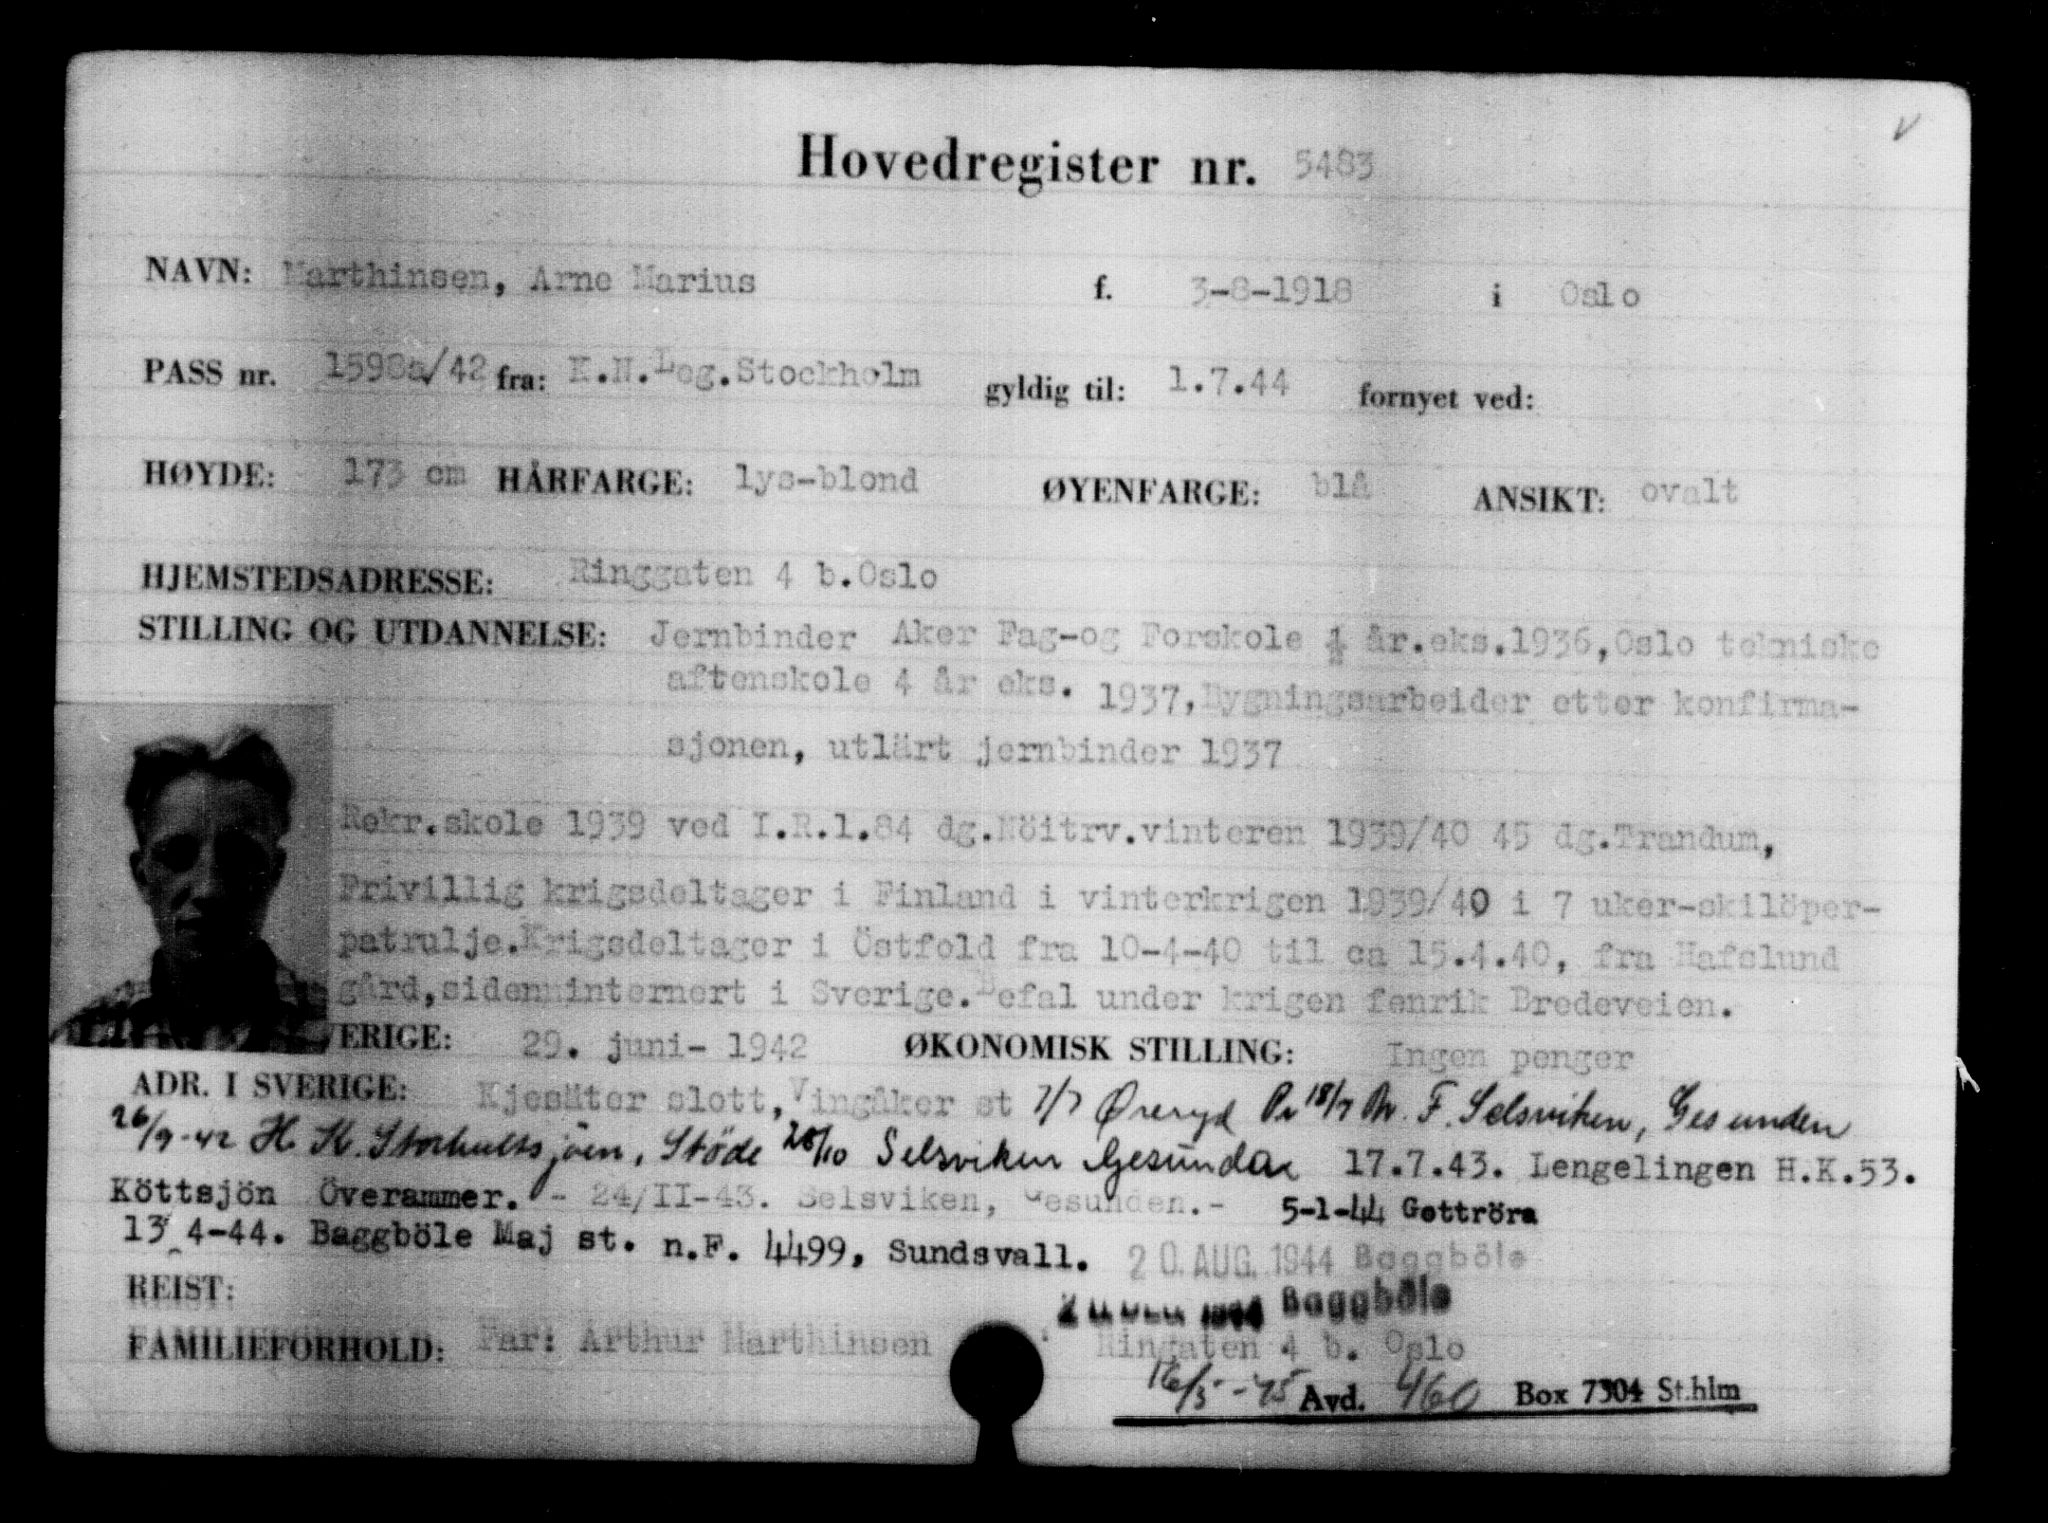 Hovedregister nr. 5483
NAVN: Marthinsen, Arne Marius f. 3-8-1918 i Oslo
PASS nr. 1598a/42 fra: K.N.Leg.Stockholm gyldig til: 1.7.44 fornyet ved:
HØYDE: 173 cm HÅRFARGE: lys-blond ØYENFARGE: blå ANSIKT: ovalt
HJEMSTEDSADRESSE: Ringgaten 4 b.Oslo
STILLING OG UTDANNELSE: Jernbinder Aker Fag-og Forskole ½ år.eks.1936,Oslo tekniske
aftenskole 4 år eks. 1937,Bygningsarbeider etter konfirma-
sjonen, utlärt jernbinder 1937
Rekr.skole 1939 ved I.R.1.84 dg.Nöitrv.vinteren 1939/40 45 dg.Trandum,
Frivillig krigsdeltager i Finland i vinterkrigen 1939/40 i 7 uker-skilöper-
patrulje.Krigsdeltager i Östfold fra 10-4-40 til ca 15.4.40, fra Hafslund
gård,siden internert i Sverige.Befal under krigen fenrik Bredeveien.
VERIGE: 29. juni- 1942 ØKONOMISK STILLING: Ingen penger
ADR. I SVERIGE: Kjesäter slott,Vingåker st 7/7 Öreryd Pr 18/7 F. Selsviken, Gesunden
26/9-42 H. K. Storhultsjöen, Stöde 28/10 Selsviken Gesunden 17.7.43. Lengelingen H.K.53.
Köttsjön Överammer. - 24/II-43. Selsviken, Gesunden.- 5-1-44 Gottröra
13 4-44. Baggböle Maj st. n.F. 4499, Sundsvall. 20. AUG. 1944 Baggböle
REIST: Baggböle
FAMILIEFORHOLD: Far: Arthur Marthinsen Ringaten 4 b. Oslo
16/5-45 Avd. 460 Box 7304 St.hlm